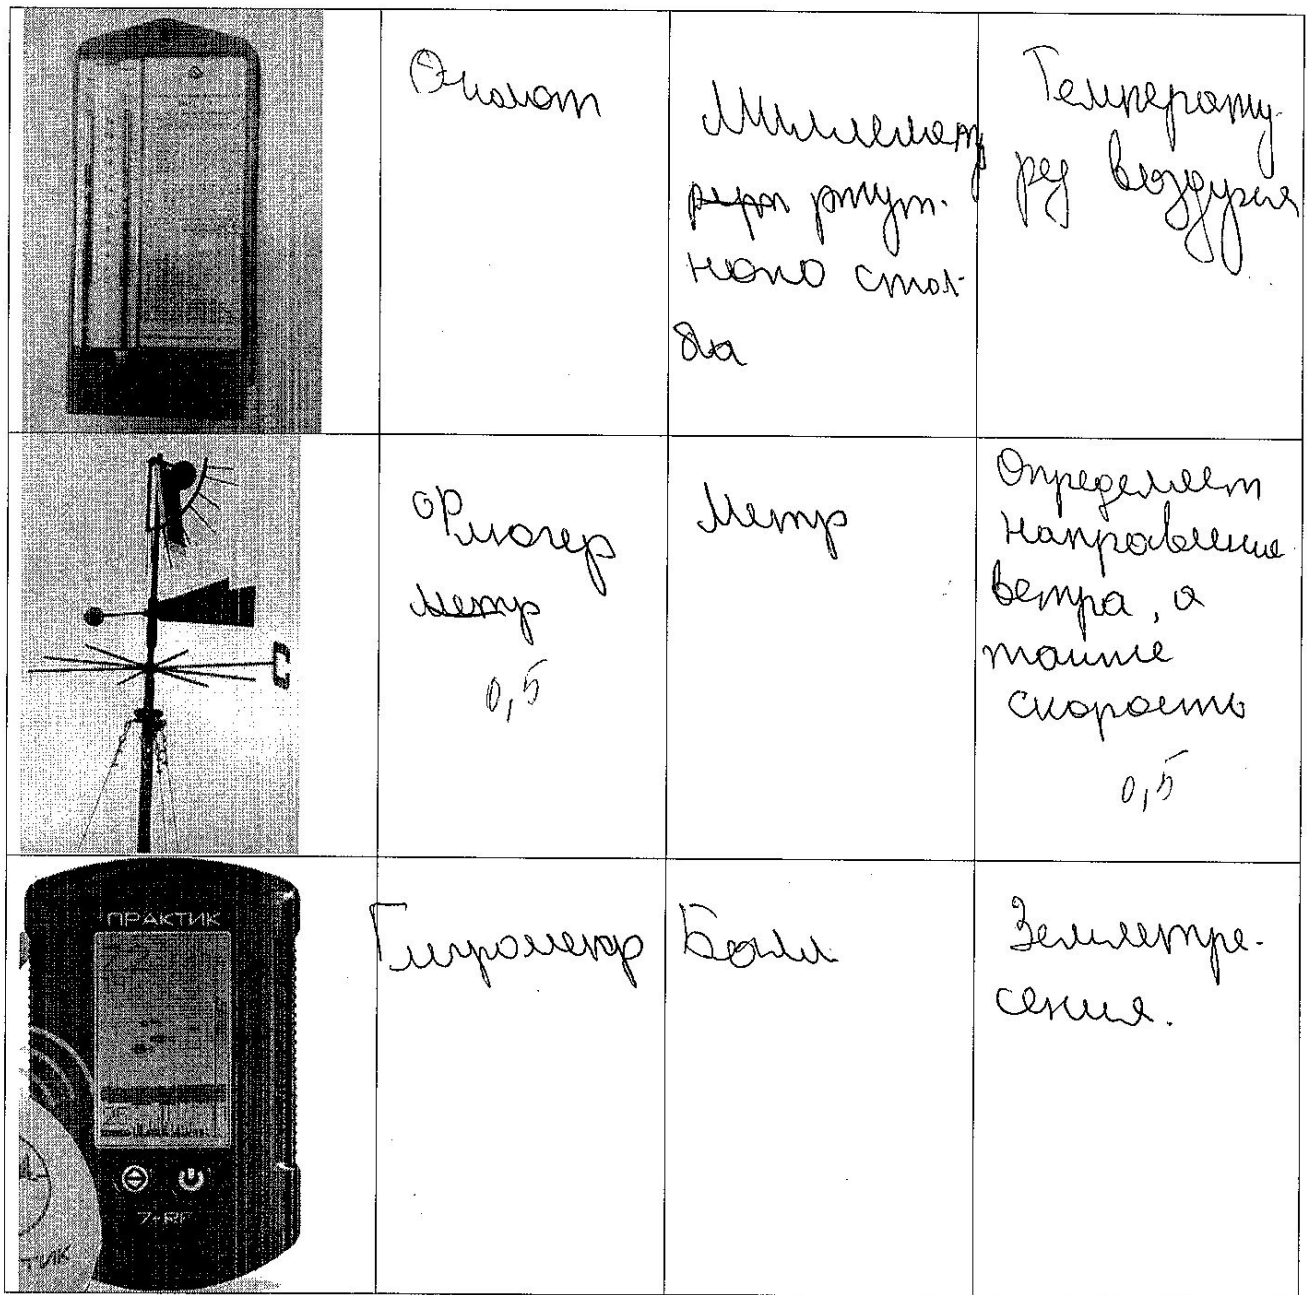 Эхолот
Миллемет
ртут-
ного стол-
ба
Температу-
ра воздуха
Флюгер
метр
0,5
Метр
Определяет
направление
ветра, а
также
скорость
0,5
ПРАКТИК
7-RF
ТИК
Гигрометр
Балл
Землетре-
сения.